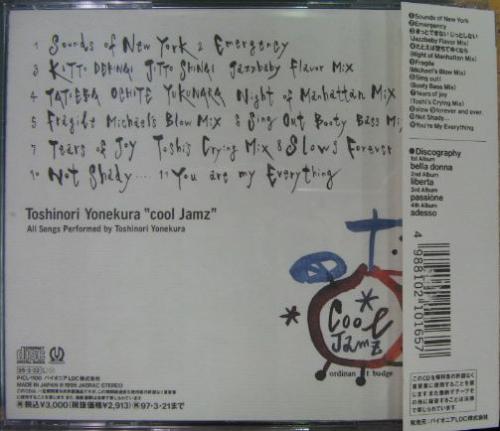 1 Sounds of New York 2 Emergency
3 KITTO DEKINAI JITTO SHINAI Jazzbaby Flavor Mix
4 TATOEBA OCHITE YUKUNARA Night of Manhattan Mix
5 Fragile Michael's Blow Mix 6 Sing Out Booty Bass Mi
7 Tears of Joy Toshi's Crying Mix 8 Slows Forever
10 Not Shady.... 11 You are my Everything
Toshinori Yonekura "cool Jamz"
All Songs Performed by Toshinori Yonekura
Cool
Jamz
ordinan t budge
COMPACT
disc
DIGITAL AUDIO
PICL-1100 パイオニアLDC株式会社
MADE IN JAPAN JASRAC STEREO
税込¥3,000(税抜価格¥2,913) 97・3・21まで
❶Sounds of New York
❷Emergency
❸きっとできない じっとしない
(Jazzbaby Flavor Mix)
❹たとえば堕ちてゆくなら
(Night of Manhattan Mix)
❺Fragile
(Michael's Blow Mix)
❻Sing out!
(Booty Bass Mix)
❼Tears of joy
(Toshi's Crying Mix)
forever and ever.
Not Shady...
You're My Everything
●Discography
1st Album
bella donna
2nd Album
liberta
3rd Album
passione
4th Album
adesso
4 988102 101657
発売元:パイオニアLDC株式会社